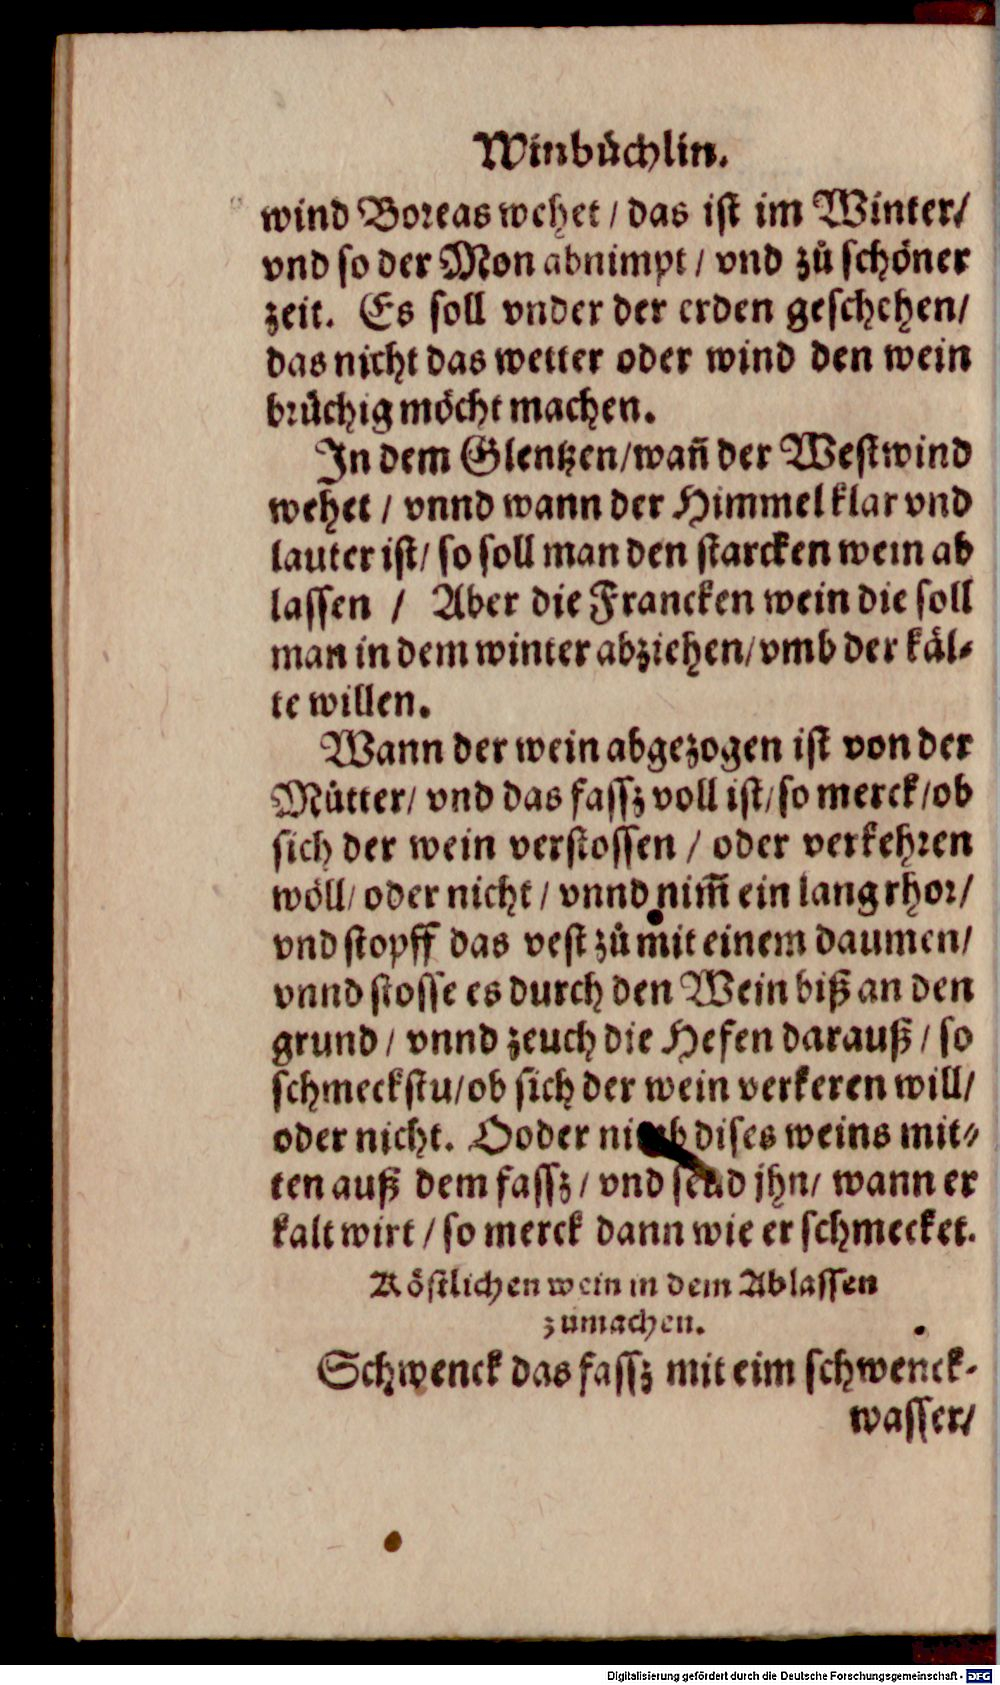 Winbůchlin.
wind Boreas wehet / das ist im Winter/
vnd so der Mon abnimpt / vnd zů schöner
zeit. Es soll vnder der erden geschehen/
das nicht das wetter oder wind den wein
brüchig möcht machen.
In dem Glentzen/wañ der Westwind
wehet / vnnd wann der Himmel klar vnd
lauter ist/ so soll man den starcken wein ab
lassen / Aber die Francken wein die soll
man in dem winter abziehen/vmb der käl-
te willen.
Wann der wein abgezogen ist von der
Mütter/ vnd das fassz voll ist/so merck/ob
sich der wein verstossen / oder verkehren
wöll/ oder nicht / vnnd nim̃ ein lang rhor/
vnd stopff das vest zů mit einem daumen/
vnnd stosse es durch den Wein biß an den
grund / vnnd zeuch die Hefen darauß / so
schmeckstu/ob sich der wein verkeren will/
oder nicht. Ooder nimb dises weins mit-
ten auß dem fassz / vnd seud jhn/ wann er
kalt wirt / so merck dann wie er schmecket.
Köstlichen wein in dem Ablassen
zumachen.
Schwenck das fassz mit eim schwenck-
wasser/
Digitalisierung gefördert durch die Deutsche Forschungsgemeinschaft - DFG